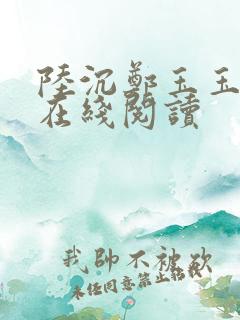 陸沉鄭玉玉
在綫閱讀
我帥不被砍
未经同意禁止轉載